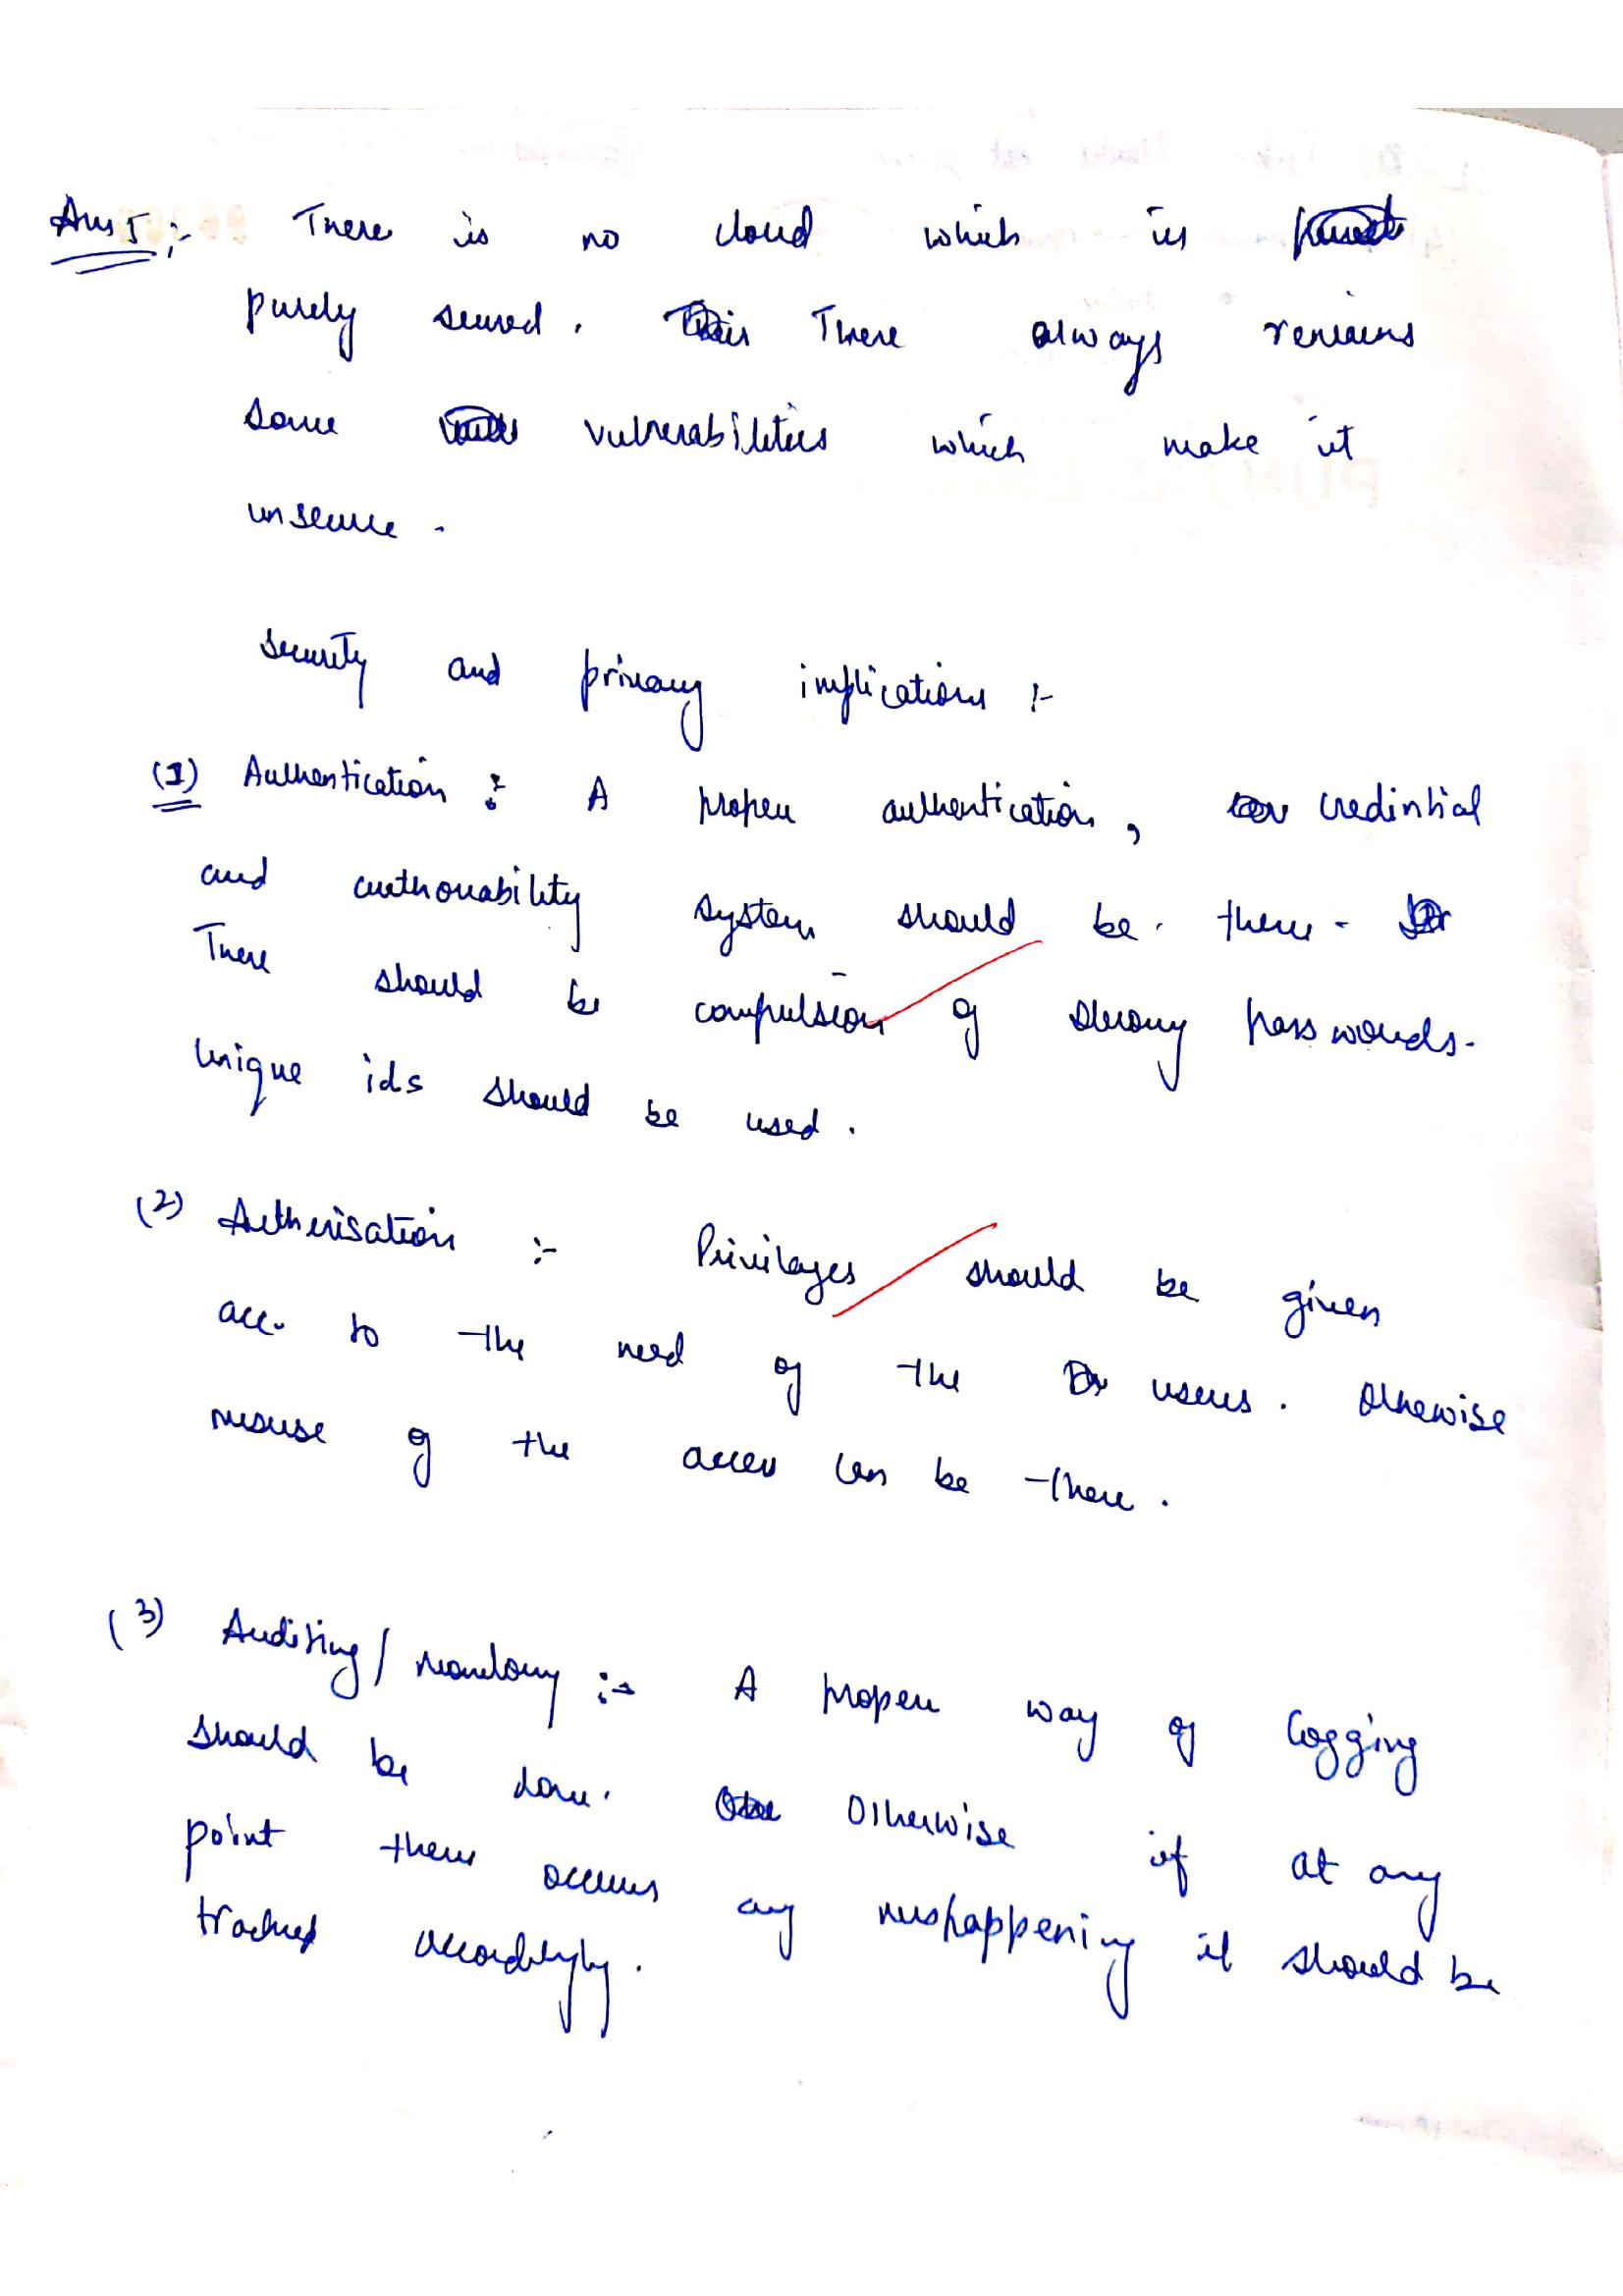 Ans 5 :-  There is no cloud which is
purely secured. There always remains
some vulnerabilities which make it
unsecure.
security and privacy implications :-
(1) Authentication :- A proper authentication, credintial
and system should be there.
There should be compulsion of strong passwords.
Unique ids should be used.
(2) Autherisation :- Privilages should be given
acc. to the need of the users. Otherwise
misuse of the access can be there.
(3) Auditing/ :- A proper way of logging
should be done. Otherwise if at any
point there occurs any mishappening it should be
tracked accordingly.